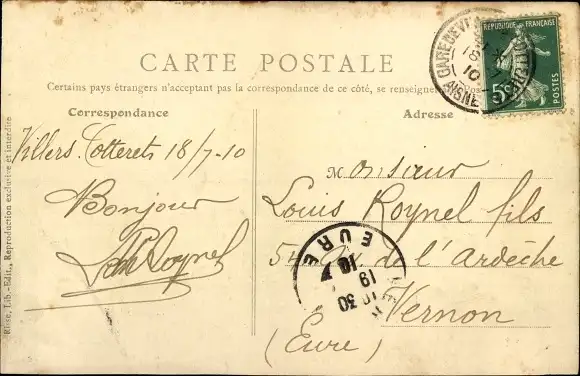 CARTE POSTALE
Certains pays étrangers n'acceptant pas la correspondance de ce côté, se renseigner
Correspondance
Adresse
Villers-Cotterets 18/7-10
Bonjour
Monsieur
Louis Roynel fils
54 de l'Ardèche
Vernon
(Eure)
REPUBLIQUE FRANÇAISE
5c
POSTES
GARE DE
AISNE
EURE
19
30
Lib.-Edit., Reproduction exclusive et interdite